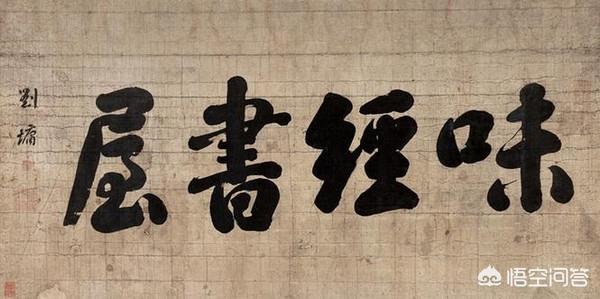 味經書屋
劉墉
悟空问答